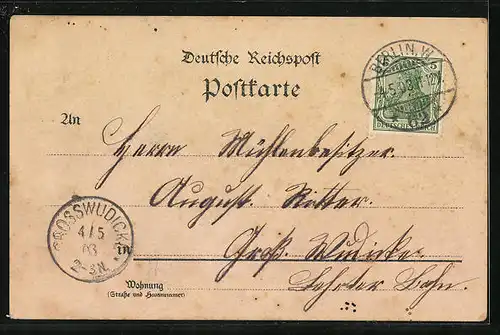 Deutsche Reichspost
Postkarte
BERLIN.W.
5
An
Herrn Mühlenbesitzer
August Ritter
GROSSWUDICKE
4/5
03
2-3N.
in
Groß Wudicke
Lehrter Bahn.
Wohnung
(Straße und Hausnummer)